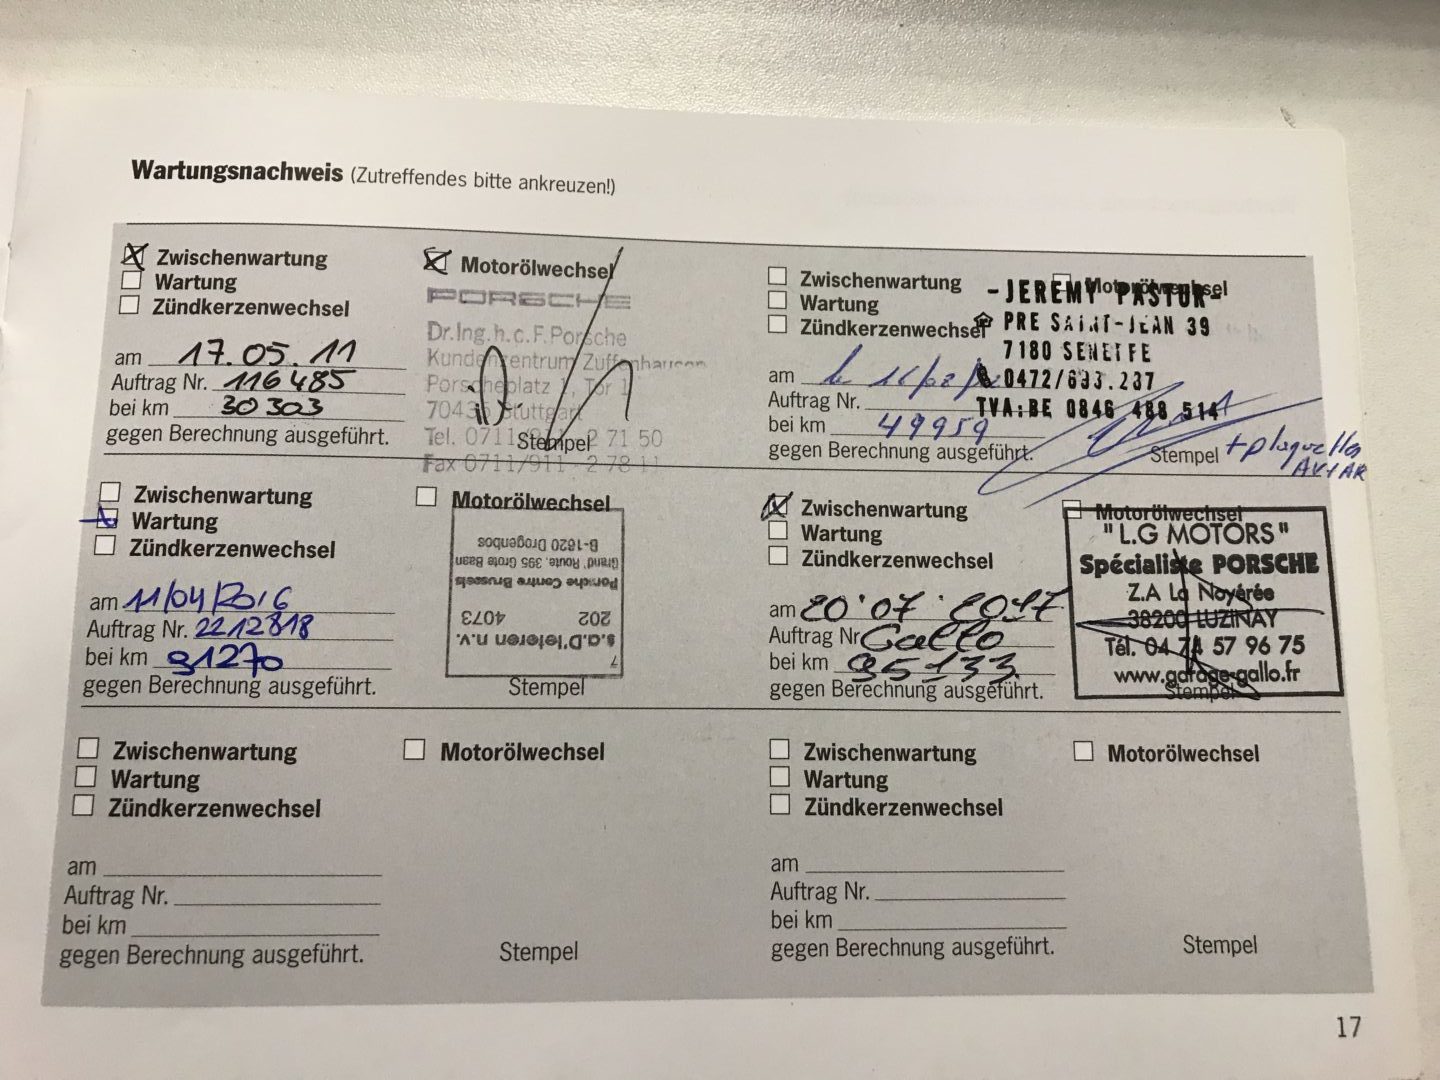 Wartungsnachweis (Zutreffendes bitte ankreuzen!)
Zwischenwartung
Wartung
Zündkerzenwechsel
Motorölwechsel
PORSCHE
Dr.Ing.h.c.F.Porsche
Kundenzentrum Zuffenhausen
Porscheplatz 1, Tor 1
7043 Stuttgart
Tel. 0711/911 - 2 71 50
Fax 0711/911 - 2 78 11
am 17.05.11
Auftrag Nr. 116485
bei km 30303
gegen Berechnung ausgeführt.
Stempel
Zwischenwartung
Wartung
Zündkerzenwechsel
Motorölwechsel
-JEREMY PASTUR-
PRE SAINT-JEAN 39
7180 SENEFFE
0472/633.237
TVA:BE 0846 488 514
am le 11/02/
Auftrag Nr.
bei km 49959
gegen Berechnung ausgeführt.
Stempel
+ plaquettes
AV+AR
Zwischenwartung
Wartung
Zündkerzenwechsel
Motorölwechsel
am 11/04/2016
Auftrag Nr. 2212818
bei km 91270
gegen Berechnung ausgeführt.
7
s.a.D'Ieteren n.v.
202 4073
Porsche Centre Brussels
Grand' Route, 395 Grote Baan
B-1620 Drogenbos
Stempel
Zwischenwartung
Wartung
Zündkerzenwechsel
Motorölwechsel
am 20.07.2017
Auftrag Nr. Gallo
bei km 95133
gegen Berechnung ausgeführt.
"L.G MOTORS"
Spécialiste PORSCHE
Z.A La Noyérée
38200 LUZINAY
Tél. 04 74 57 96 75
www.garage-gallo.fr
Stempel
Zwischenwartung
Wartung
Zündkerzenwechsel
Motorölwechsel
am
Auftrag Nr.
bei km
gegen Berechnung ausgeführt.
Stempel
Zwischenwartung
Wartung
Zündkerzenwechsel
Motorölwechsel
am
Auftrag Nr.
bei km
gegen Berechnung ausgeführt.
Stempel
17